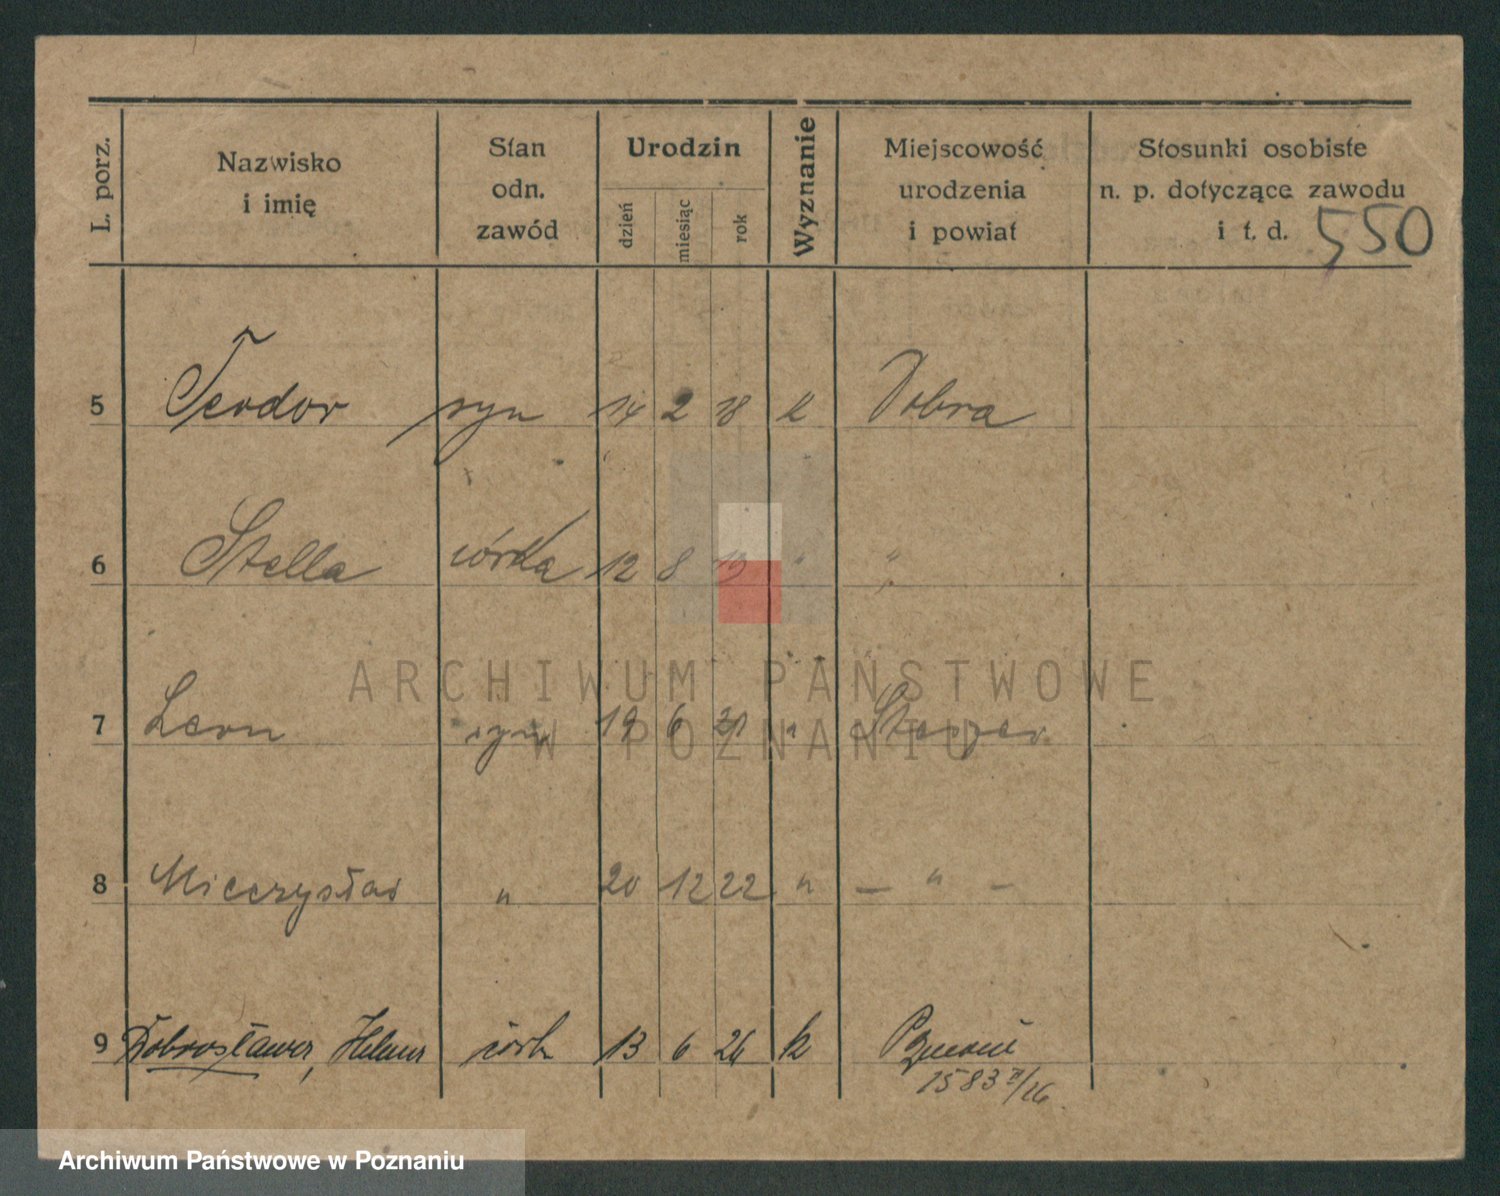 L. porz. Nazwisko i imię Stan odn. zawód Urodzin dzień miesiąc rok Wyznanie Miejscowość urodzenia i powiat Stosunki osobiste n. p. dotyczące zawodu i t. d. 550
5 Teodor syn 14 2 18 k Dobra
6 Stella córka 12 8 19 " "
ARCHIWUM PAŃSTWOWE
W POZNANIU
7 Leon syn 19 6 21 "
8 Mieczysław " 20 12 22 " — " —
9 Dobrosława, Helena córk 13 6 26 k Poznań
1583 II/26
Archiwum Państwowe w Poznaniu